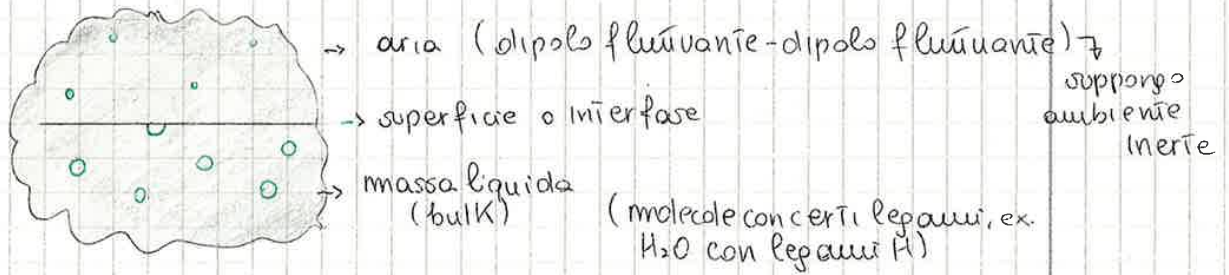 → aria (dipolo fluttuante-dipolo fluttuante) ↴
suppongo
ambiente
inerte
→ superficie o interfase
→ massa liquida
(bulk)
(molecole con certi legami, ex.
H₂O con legami H)